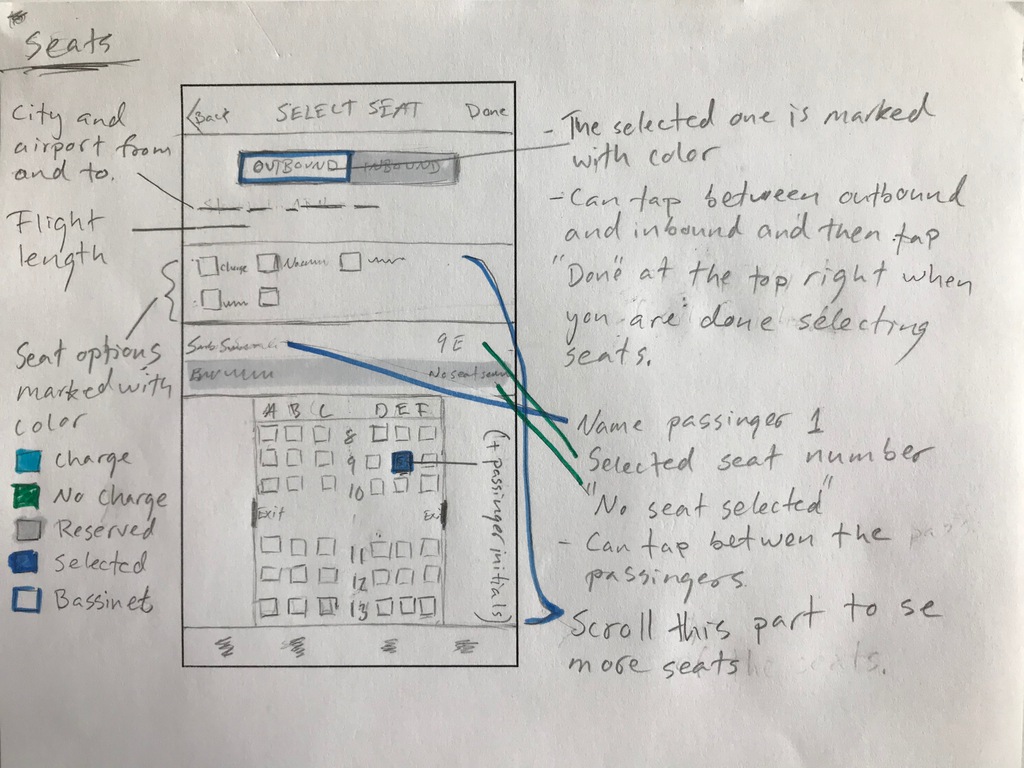 Seats
City and
airport from
and to.
Flight
length
Seat options
marked with
color
Charge
No charge
Reserved
Selected
Bassinet
<Back SELECT SEAT Done
OUTBOUND INBOUND
Charge
9E
No seat
A B C D E F
8
9
10
Exit Exi
11
12
13
(+ passinger initials)
- The selected one is marked
with color
- Can tap between outbound
and inbound and then tap
"Done" at the top right when
you are done selecting
seats.
Name passinger 1
Selected seat number
"No seat selected"
- Can tap betwen the
passingers
Scroll this part to se
more seats